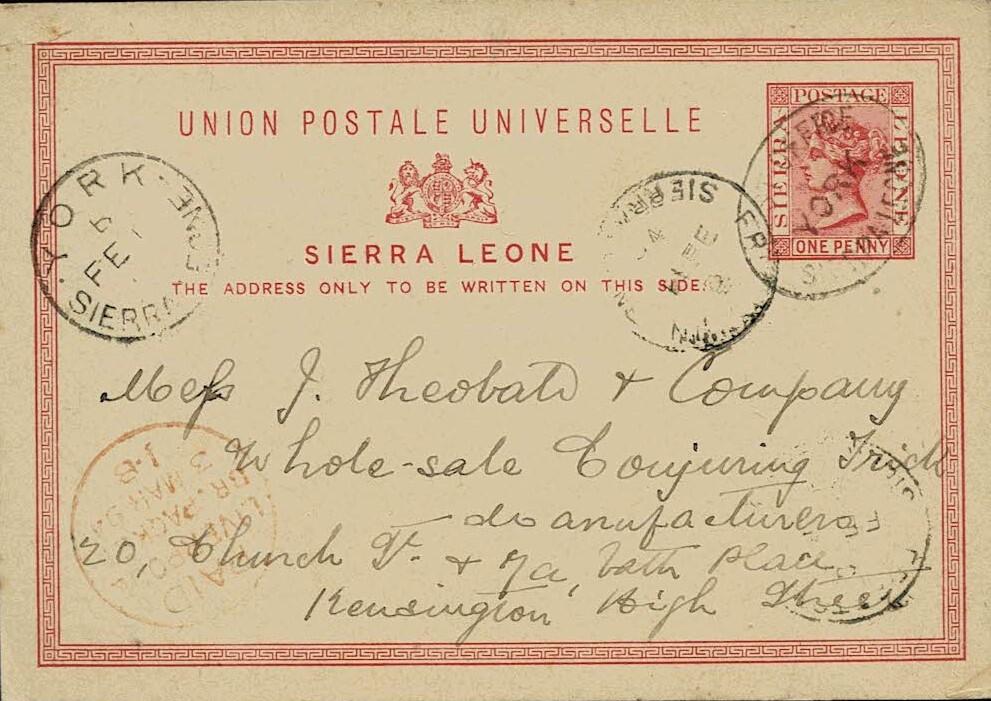 UNION POSTALE UNIVERSELLE
POSTAGE
SIERRA LEONE
ONE PENNY
YORK
YORK · SIERRA LEONE
6
FE
SIERRA
FE
SIERRA LEONE
THE ADDRESS ONLY TO BE WRITTEN ON THIS SIDE.
Mess J. Theobald & Company
Whole-sale Conjuring Trick
Manufacturers
20, Church St. & 7a, Bath Place,
Kensington High Street
PAID
LIVERPOOL
BR. PACKET
MAR 95
3